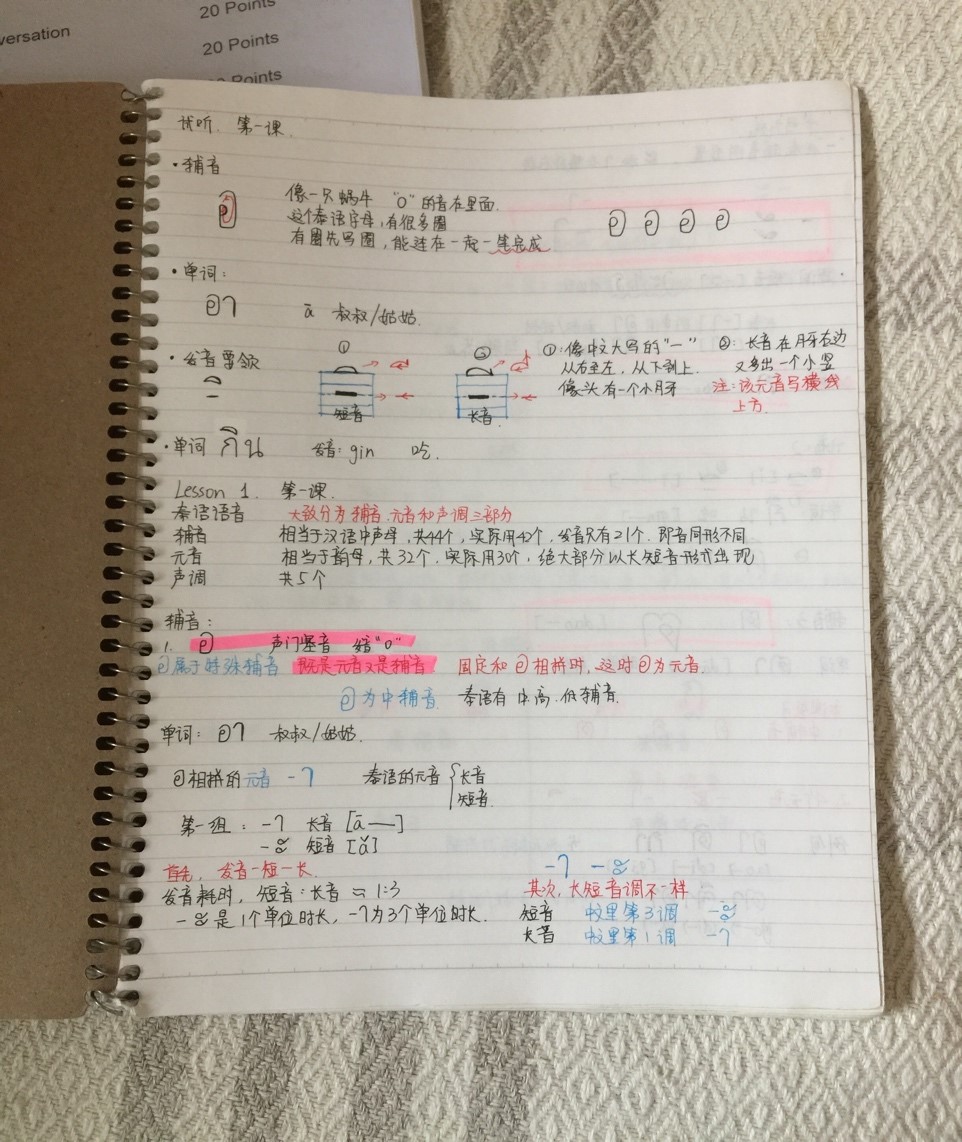 20 Points
versation
20 Points
Points
试听. 第一课.
·辅音
อ
像一只蜗牛 "O"的音在里面.
这个泰语字母,有很多圈
有圈先写圈,能连在一起一笔完成
อ อ อ อ
·单词:
อา ā 叔叔/姑姑.
·发音要领
① 短音
② 长音
①:像中文大写的"一"
从右至左,从下到上.
像头有一个小月牙
②: 长音在月牙右边
又多出一个小竖
注:该元音写横线
上方.
·单词 กิน 发音: gin 吃.
Lesson 1. 第一课.
泰语语音 大致分为辅音.元音和声调三部分
辅音 相当于汉语中声母,共44个,实际用42个,发音只有21个.即音同形不同.
元音 相当于韵母,共32个.实际用30个,绝大部分以长短音形式出现
声调 共5个
辅音:
1. อ 声门塞音 "O"
อ属于特殊辅音 既是元音又是辅音 固定和อ相拼时,这时อ为元音.
อ为中辅音. 泰语有中.高.低辅音.
单词: อา 叔叔/姑姑.
อ相拼的元音 -า 泰语的元音 { 长音
短音.
第一组: -า 长音 [ā——]
-ะ 短音 [ǎ]
首先, 发音一短一长.
发音耗时, 短音:长音 ≈ 1:3
-ะ是1个单位时长, -า为3个单位时长.
-า -ะ
其次,长短音调不一样
短音 中文里第3调 -ะ
长音 中文里第1调 -า